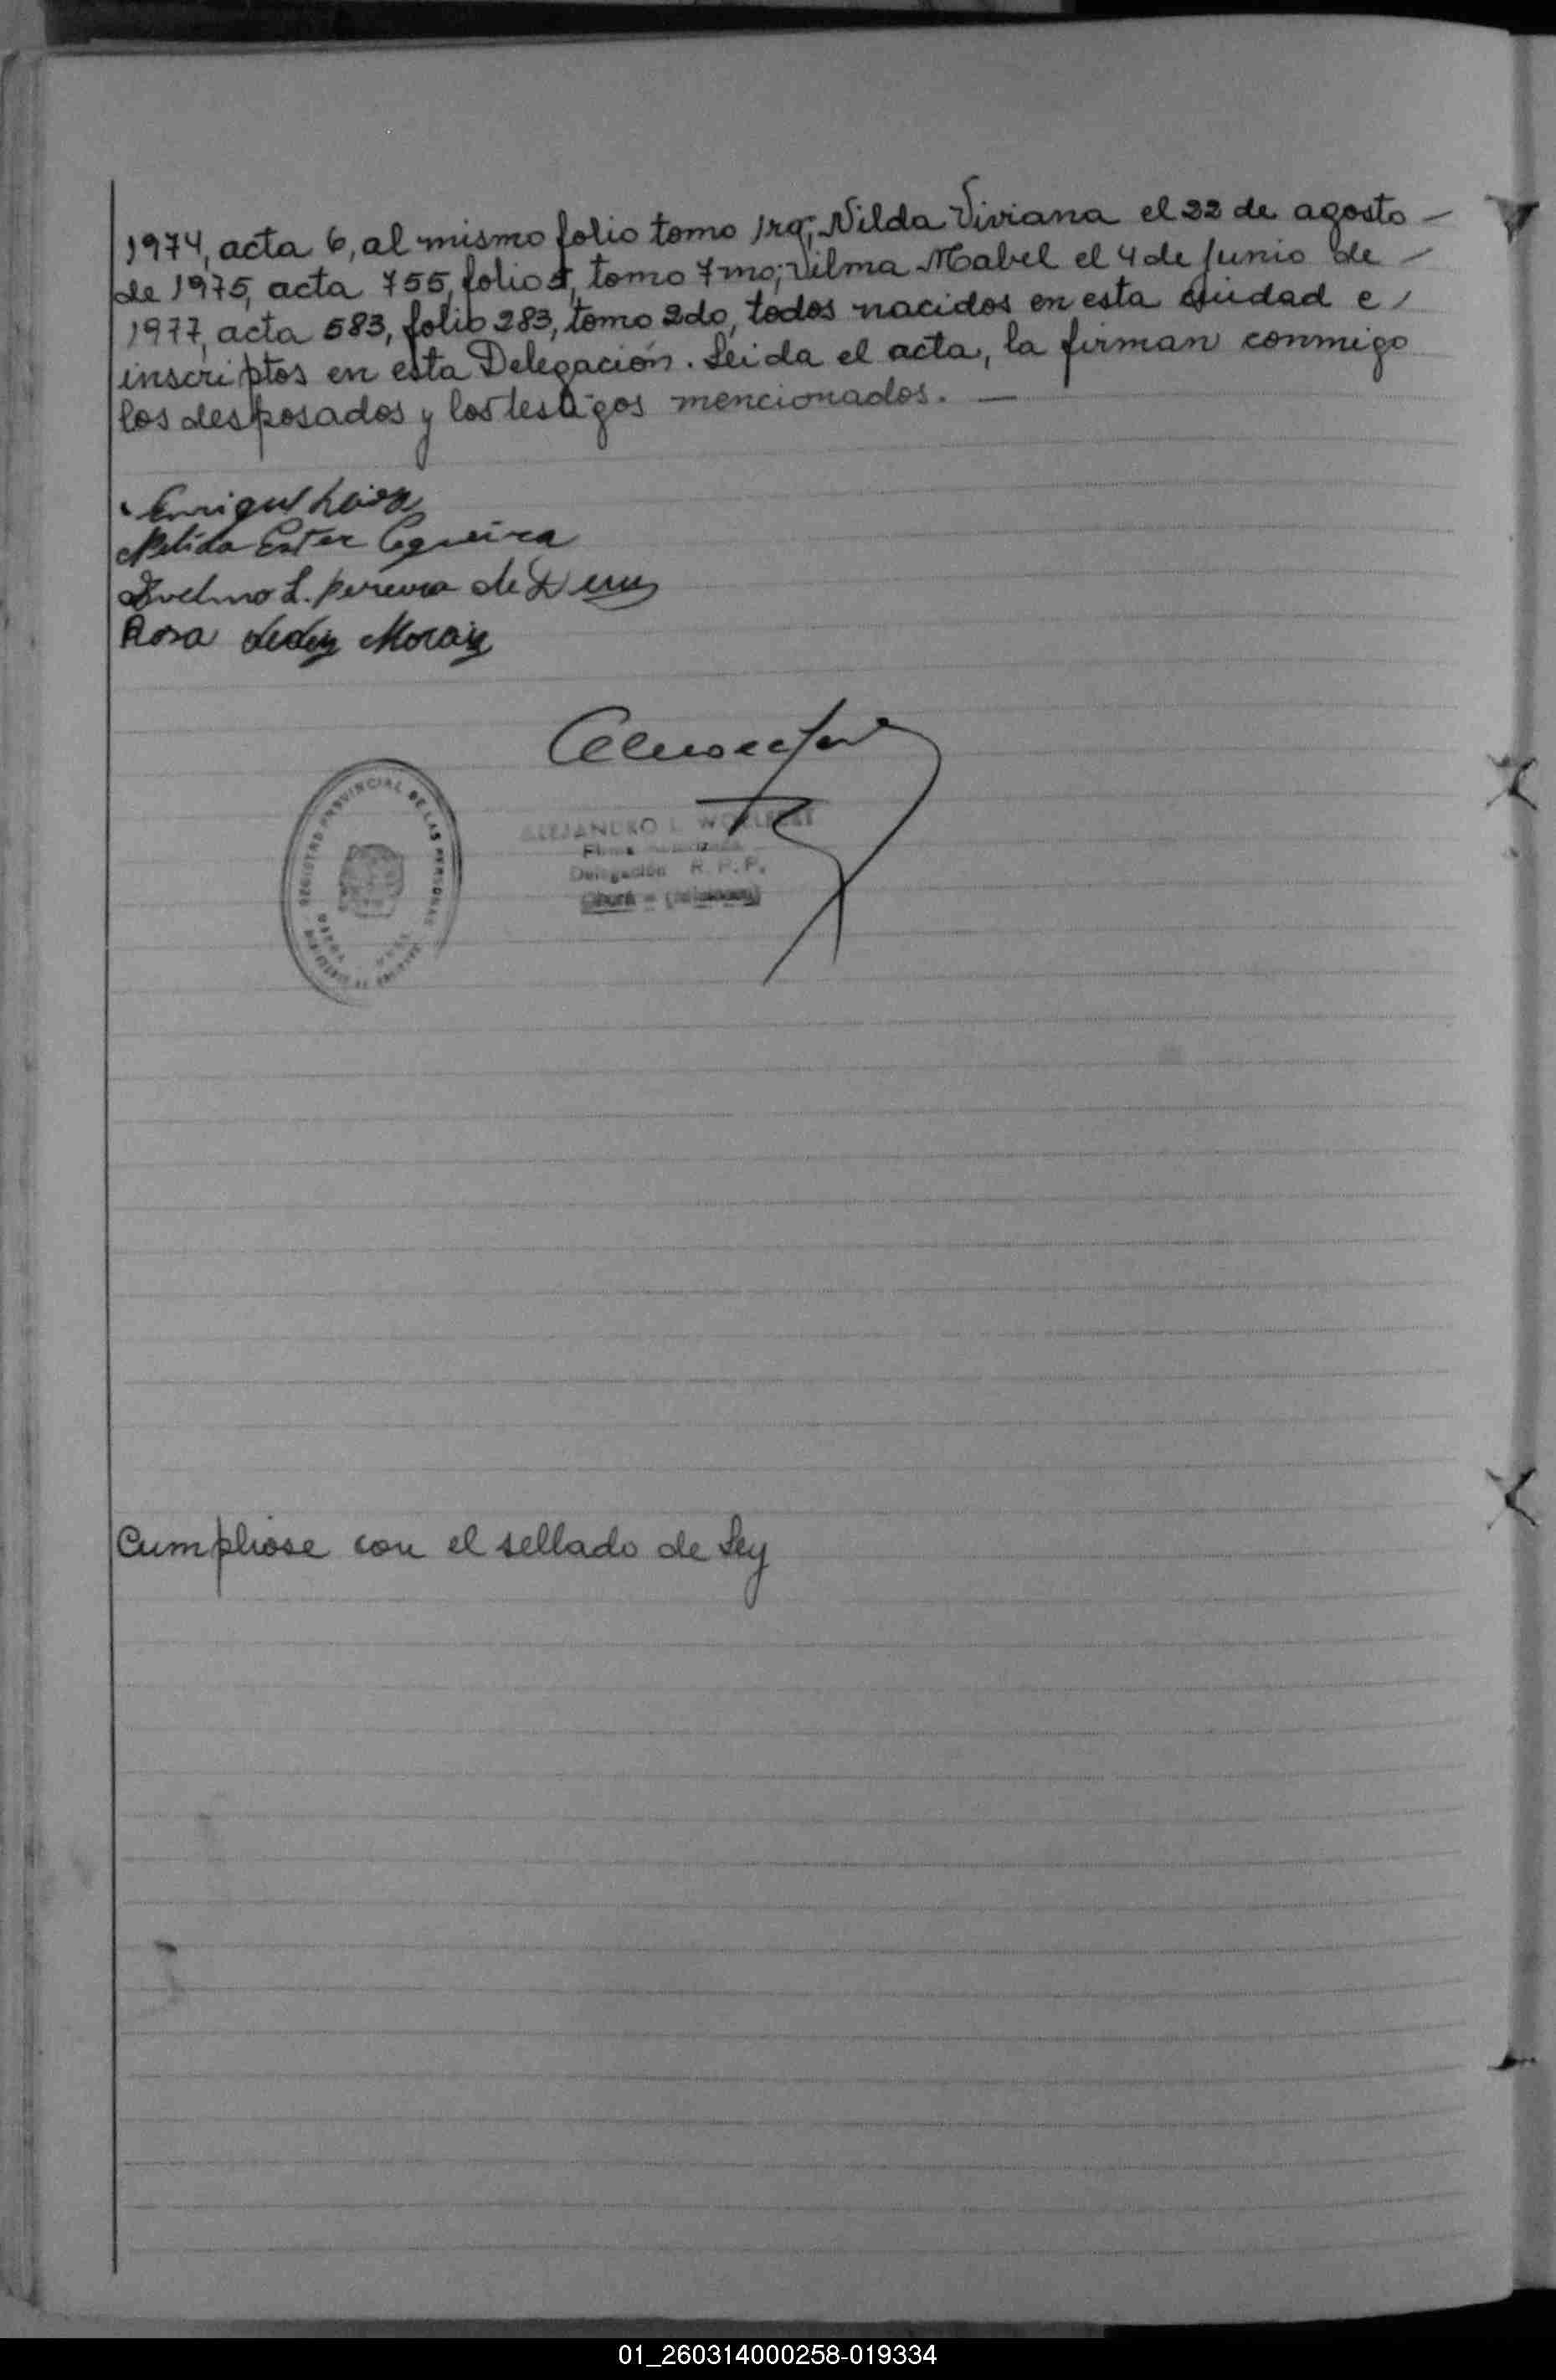 1974, acta 6, al mismo folio tomo 1ro; Nilda Viviana el 22 de agosto –
de 1975, acta 755, folio 5, tomo 7mo; Vilma Mabel el 4 de Junio de –
1977, acta 583, folio 283, tomo 2do, todos nacidos en esta ciudad e /
inscriptos en esta Delegación. Leida el acta, la firman conmigo
los desposados y los testigos mencionados. —
Enrique
Nelida Ester Cqueira
L. Pereira de
Rosa Moray
REGISTRO PROVINCIAL DE LAS PERSONAS
ALEJANDRO L.
Firma
Delegación R. P. P.
Oberá - (Misiones)
Cumpliose con el sellado de Ley
01_260314000258-019334